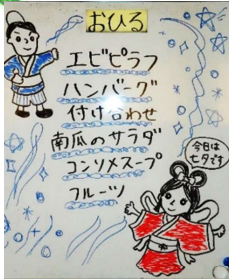 おひる
エビピラフ
ハンバーグ
付け合わせ
南瓜のサラダ
コンソメスープ
フルーツ
今日は
七夕です